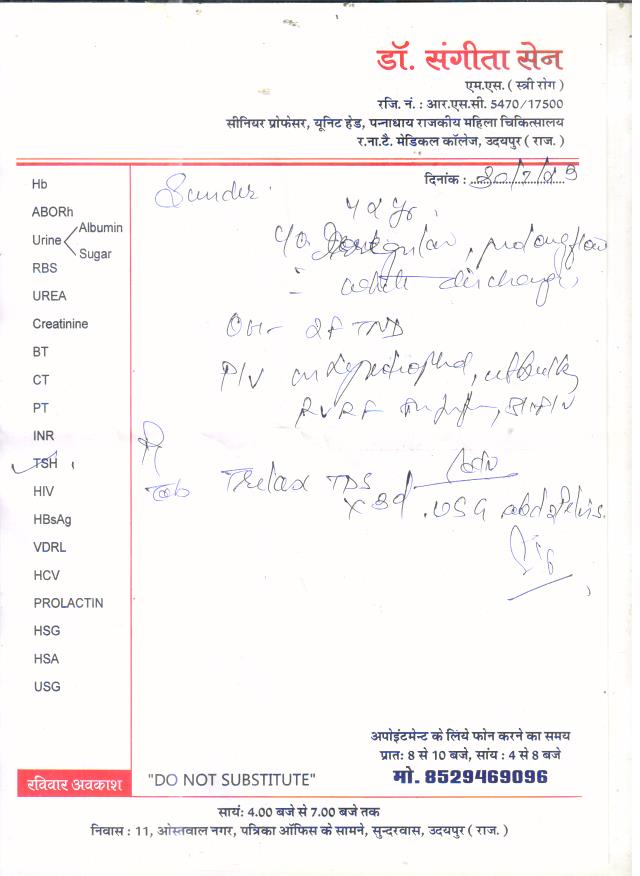 डॉ. संगीता सेन
एम.एस. ( स्त्री रोग )
रजि. नं. : आर.एस.सी. 5470/17500
सीनियर प्रोफेसर, यूनिट हेड, पन्नाधाय राजकीय महिला चिकित्सालय
र.ना.टै. मेडिकल कॉलेज, उदयपुर ( राज. )
दिनांक :
Hb
ABORh
Urine Albumin
Sugar
RBS
UREA
Creatinine
BT
CT
PT
INR
TSH
HIV
HBsAg
VDRL
HCV
PROLACTIN
HSG
HSA
USG
Sunder.
42 yr.
prolong flow
white discharge
P/V
RVRF
Adv
Tab TDS
x 3d . USG abd
अपोइंटमेन्ट के लिये फोन करने का समय
प्रातः 8 से 10 बजे, सांय : 4 से 8 बजे
मो. 8529469096
रविवार अवकाश
"DO NOT SUBSTITUTE"
सायं: 4.00 बजे से 7.00 बजे तक
निवास : 11, ओस्तवाल नगर, पत्रिका ऑफिस के सामने, सुन्दरवास, उदयपुर ( राज. )